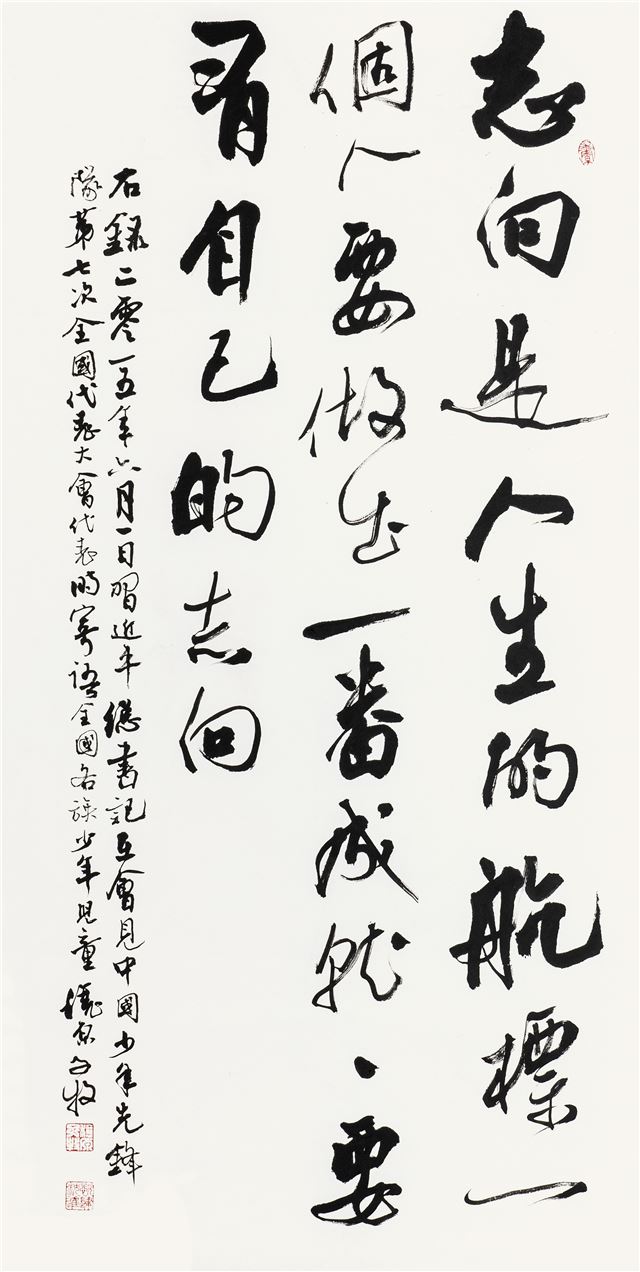 志向是人生的航標一
個人要做出一番成就、要
有自己的志向
右錄二零一五年六月一日習近平總書記在會見中國少年先鋒
隊第七次全國代表大會代表時寄語全國各族少年兒童